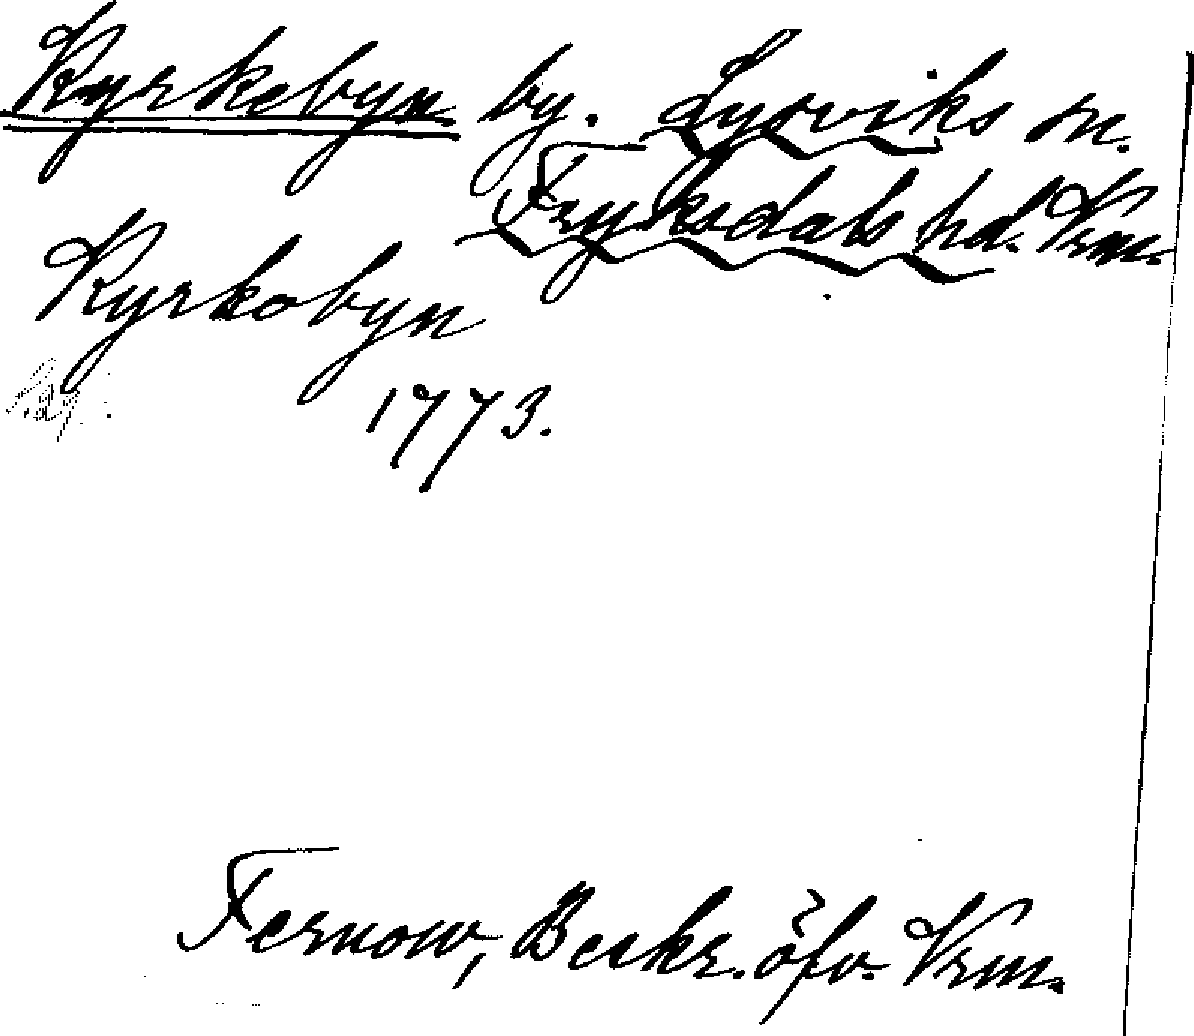 Kyrkebyn by. Lysviks sn.
Fryksdals hd. Vrm.
Kyrkobyn
1773.
Fernow, Beskr. öfv. Vrm.